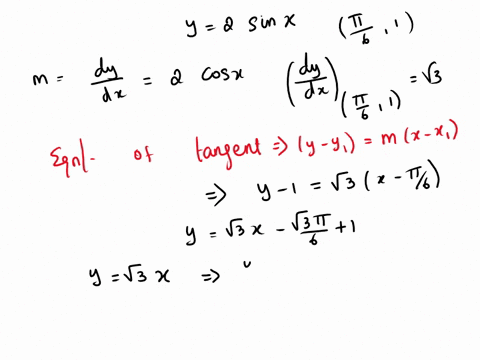 y = 2 sin x (π/6, 1)
m = dy/dx = 2 cosx (dy/dx)(π/6, 1) = √3
Eqn/- of tangent => (y-y₁) = m(x-x₁)
=> y-1 = √3 (x - π/6)
y = √3 x - √3π/6 + 1
y = √3 x =>